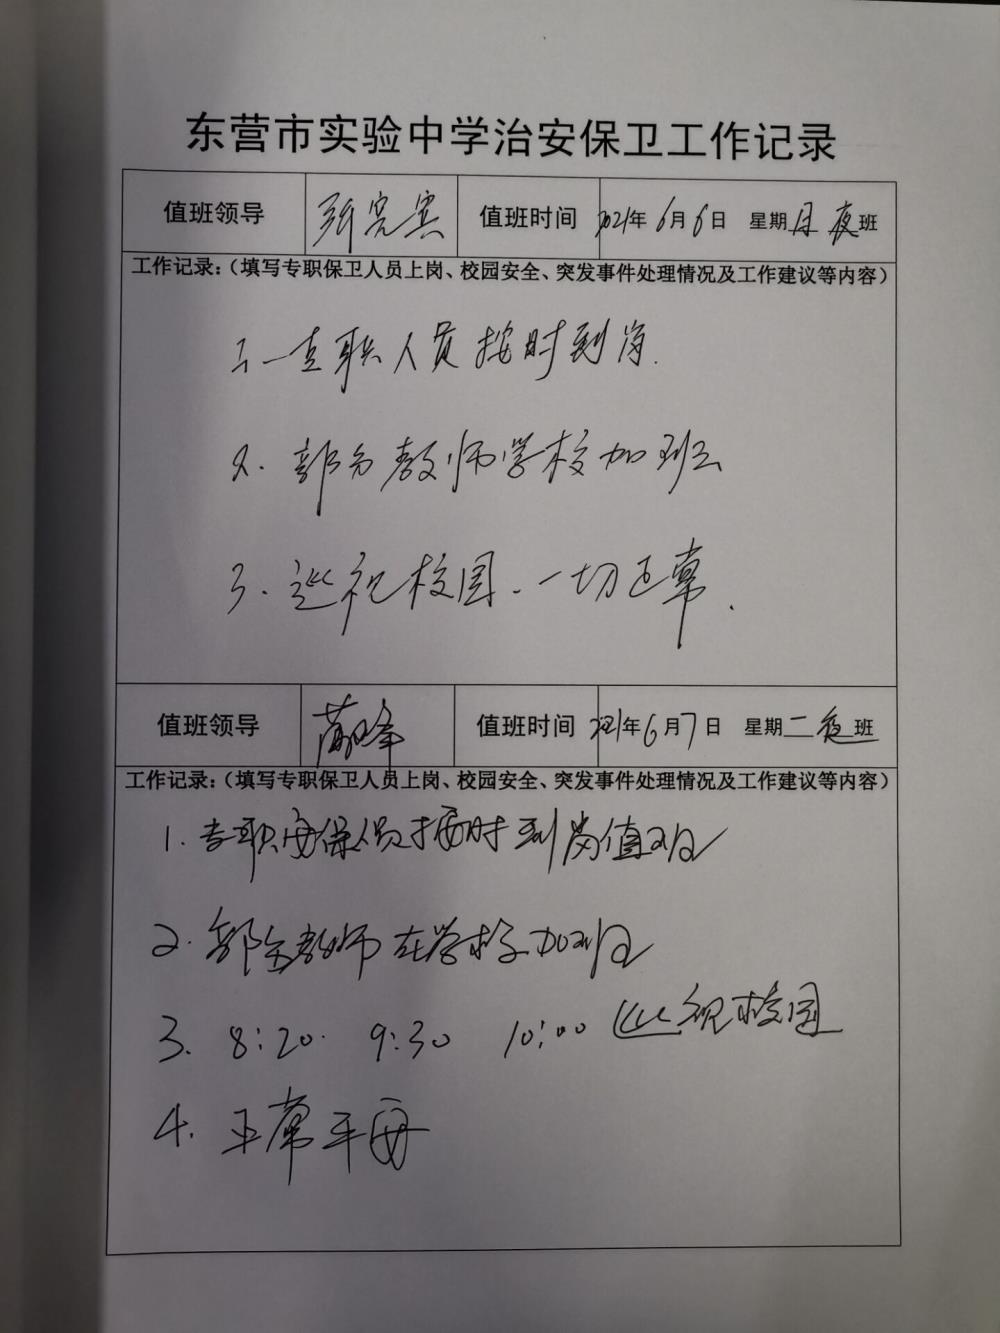 东营市实验中学治安保卫工作记录
值班领导 值班时间 2021年6月6日 星期日夜班
工作记录：（填写专职保卫人员上岗、校园安全、突发事件处理情况及工作建议等内容）
1、专职人员按时到岗.
2. 部分教师学校加班
3. 巡视校园. 一切正常.
值班领导 值班时间 2021年6月7日 星期二夜班
工作记录：（填写专职保卫人员上岗、校园安全、突发事件处理情况及工作建议等内容）
1. 专职安保人员按时到岗值班
2. 部分教师在学校加班
3. 8:20. 9:30 10:00 巡视校园
4. 正常平安